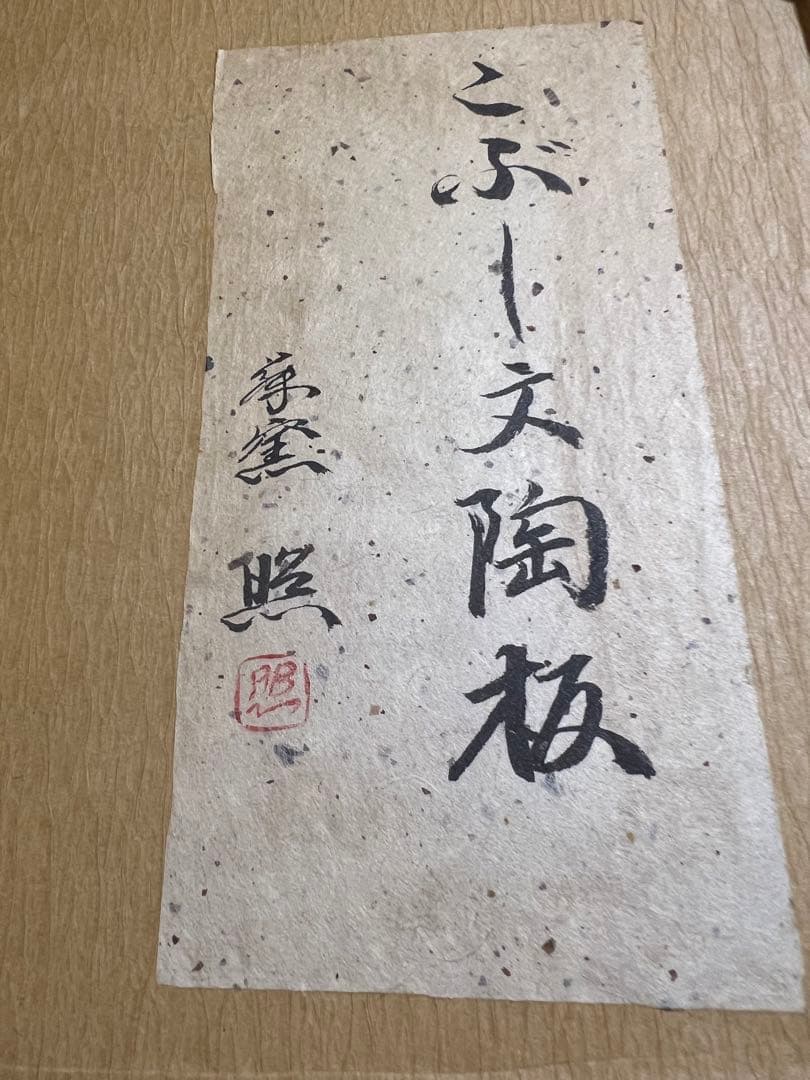 こぶし文陶板
窯 照
照